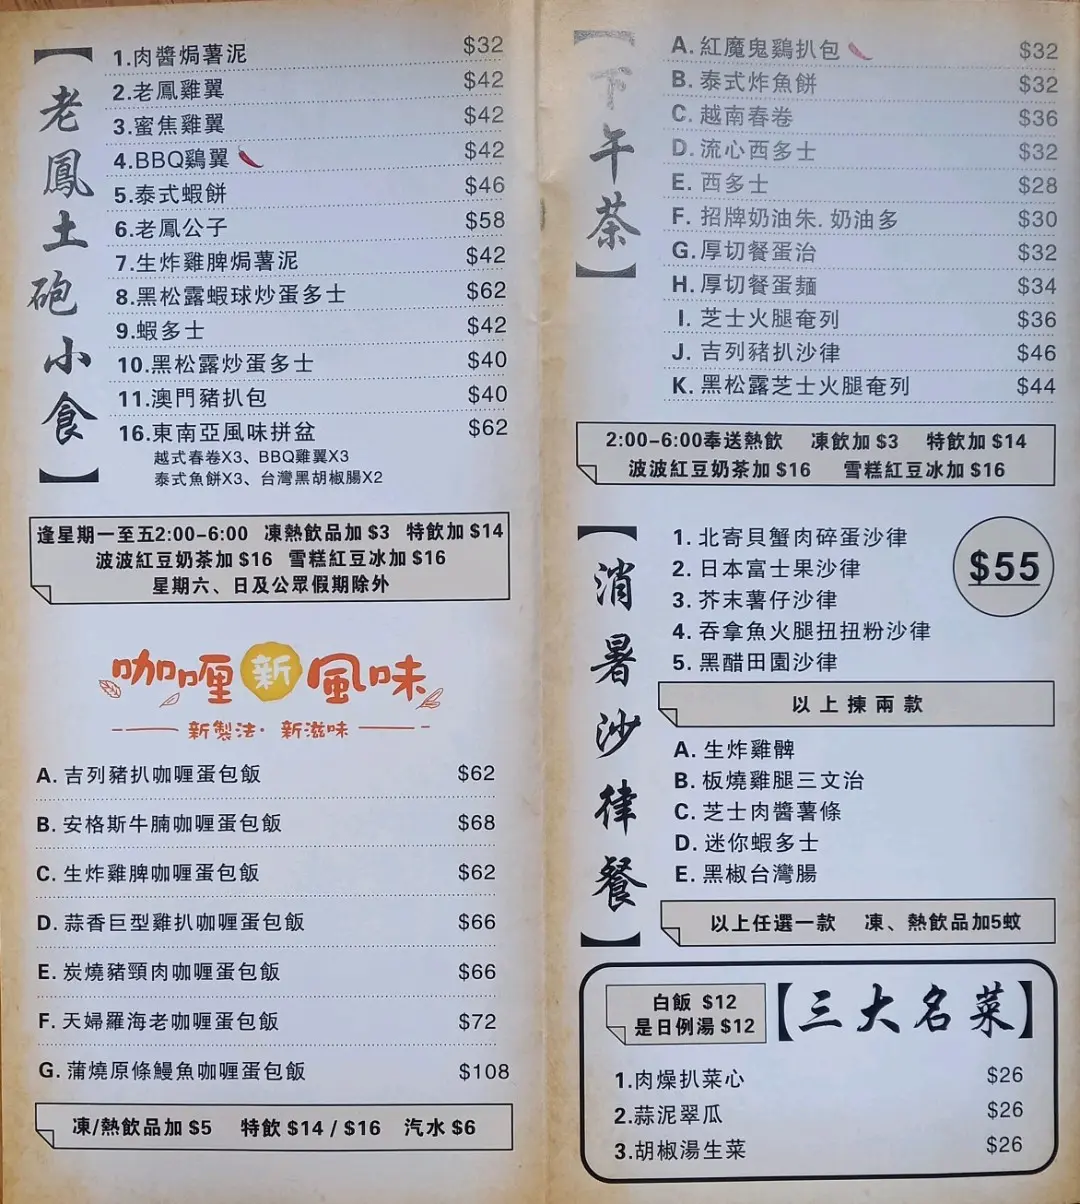 老鳳土砲小食
1.肉醬焗薯泥 $32
2.老鳳雞翼 $42
3.蜜焦雞翼 $42
4.BBQ鷄翼 $42
5.泰式蝦餅 $46
6.老鳳公子 $58
7.生炸雞脾焗薯泥 $42
8.黑松露蝦球炒蛋多士 $62
9.蝦多士 $42
10.黑松露炒蛋多士 $40
11.澳門豬扒包 $40
16.東南亞風味拼盆 $62
越式春卷X3、BBQ雞翼X3
泰式魚餅X3、台灣黑胡椒腸X2
逢星期一至五2:00-6:00 凍熱飲品加 $3 特飲加 $14
波波紅豆奶茶加 $16 雪糕紅豆冰加 $16
星期六、日及公眾假期除外
咖喱新風味
新製法·新滋味
A. 吉列豬扒咖喱蛋包飯 $62
B. 安格斯牛腩咖喱蛋包飯 $68
C. 生炸雞脾咖喱蛋包飯 $62
D. 蒜香巨型雞扒咖喱蛋包飯 $66
E. 炭燒豬頸肉咖喱蛋包飯 $66
F. 天婦羅海老咖喱蛋包飯 $72
G. 蒲燒原條鰻魚咖喱蛋包飯 $108
凍/熱飲品加 $5 特飲 $14 / $16 汽水 $6
下午茶
A. 紅魔鬼鷄扒包 $32
B. 泰式炸魚餅 $32
C. 越南春卷 $36
D. 流心西多士 $32
E. 西多士 $28
F. 招牌奶油朱. 奶油多 $30
G. 厚切餐蛋治 $32
H. 厚切餐蛋麵 $34
I. 芝士火腿奄列 $36
J. 吉列豬扒沙律 $46
K. 黑松露芝士火腿奄列 $44
2:00-6:00奉送熱飲 凍飲加 $3 特飲加 $14
波波紅豆奶茶加 $16 雪糕紅豆冰加 $16
消暑沙律餐
$55
1. 北寄貝蟹肉碎蛋沙律
2. 日本富士果沙律
3. 芥末薯仔沙律
4. 吞拿魚火腿扭扭粉沙律
5. 黑醋田園沙律
以上揀兩款
A. 生炸雞髀
B. 板燒雞腿三文治
C. 芝士肉醬薯條
D. 迷你蝦多士
E. 黑椒台灣腸
以上任選一款 凍、熱飲品加5蚊
白飯 $12
是日例湯 $12
【三大名菜】
1.肉燥扒菜心 $26
2.蒜泥翠瓜 $26
3.胡椒湯生菜 $26